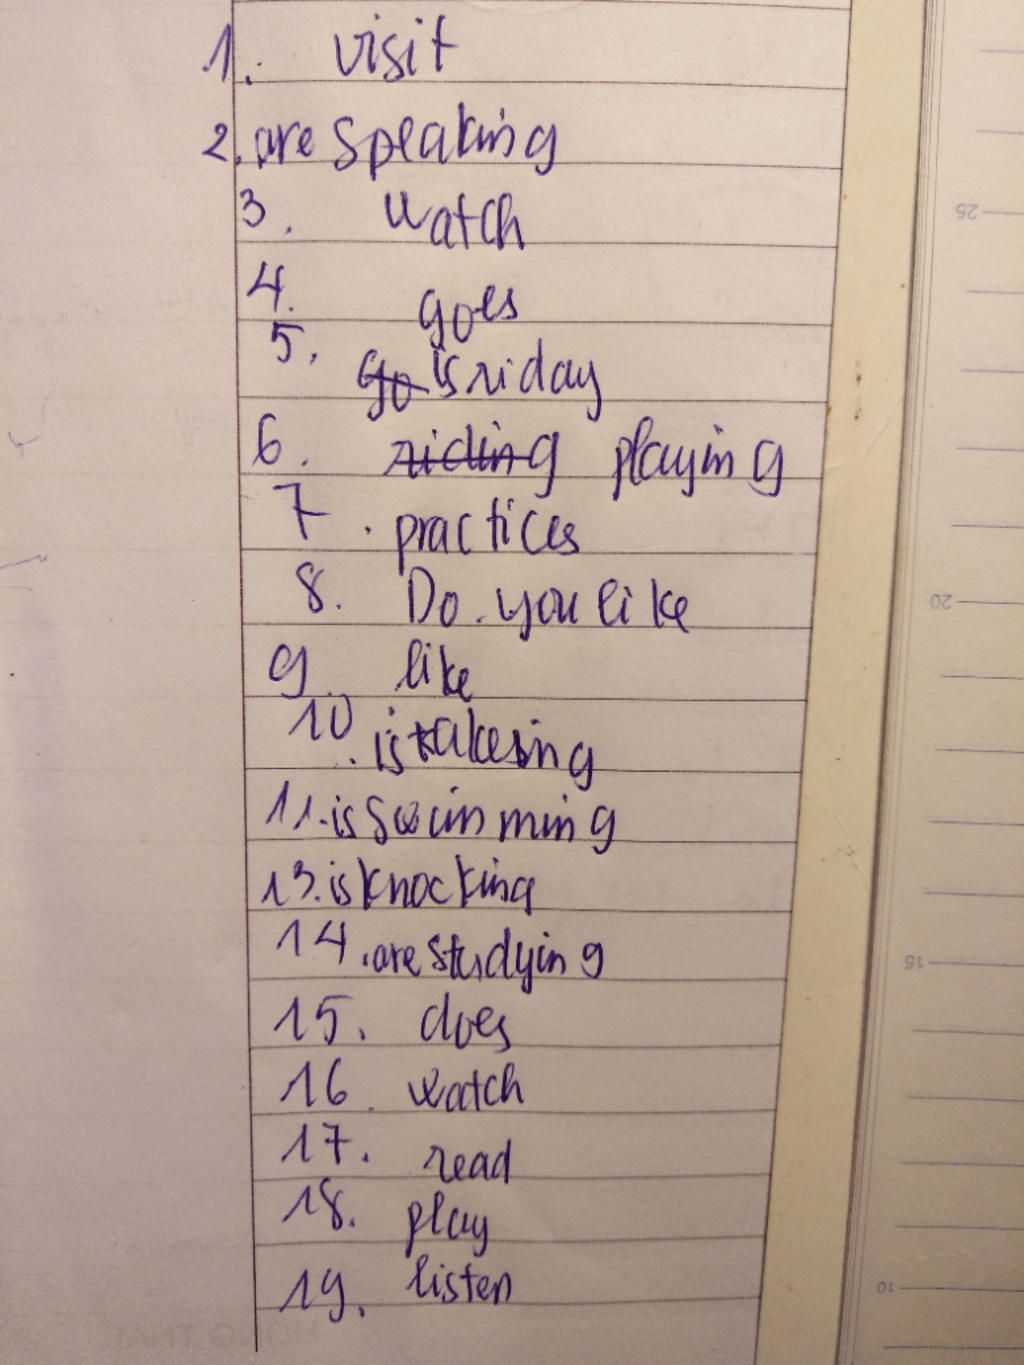 1. visit
2. are speaking
3. watch
4. goes
5. go is riday
6. riding playing
7. practices
8. Do you like
9. like
10. is takesing
11. is swimming
13. is knocking
14. are studying
15. does
16. watch
17. read
18. play
19. listen
25
20
15
10